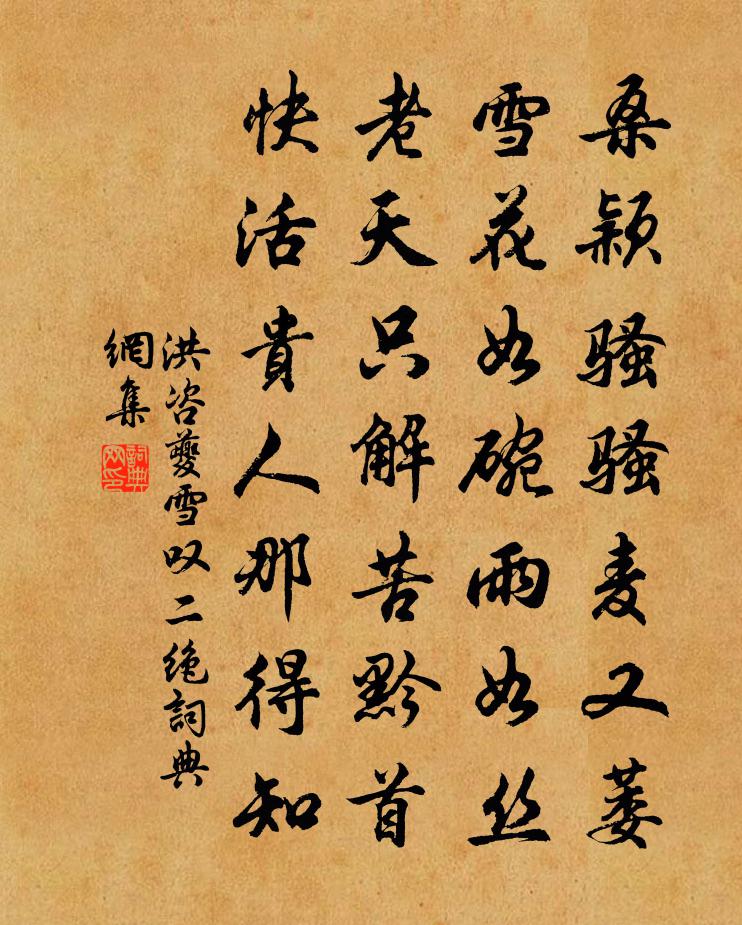 桑颖骚骚麦又萎
雪花如碗雨如丝
老天只解苦黔首
快活貴人那得知
洪咨夔雪叹二绝詞典
網集
詞典
网印